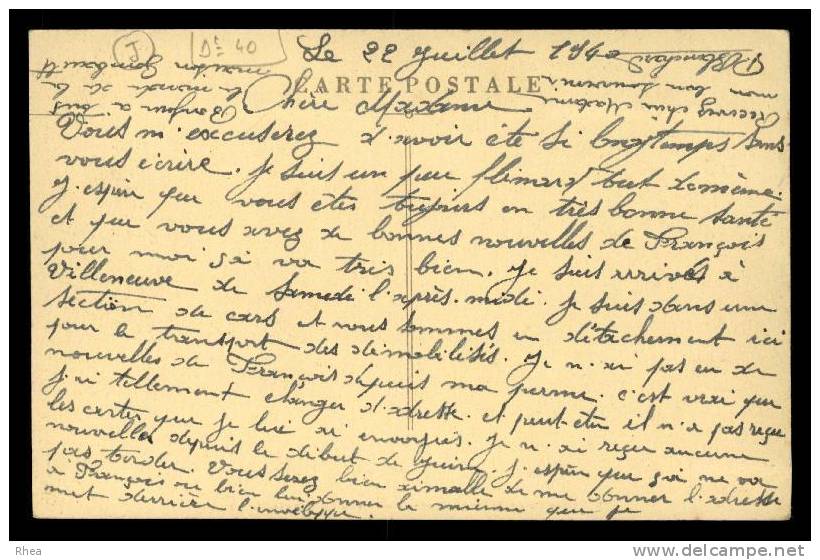 J
Dt 40
Le 22 Juillet 1940
CARTE POSTALE
Chère Madame
Vous m'excuserez d'avoir été si longtemps sans
vous écrire. Je suis un peu flémard tout de même.
J'espère que vous êtes toujours en très bonne santé
et que vous avez de bonnes nouvelles de François
pour moi ça va très bien. Je suis arrivé à
Villeneuve de Samedi l'après-midi. Je suis dans une
section de cars et nous sommes en détachement ici
pour le transport des démobilisés. Je n'ai pas eu de
nouvelles de François depuis ma perme. c'est vrai que
j'ai tellement changer d'adresse. et peut être il n'a pas reçue
les cartes que je lui ai envoyées. Je n'ai reçue aucune
nouvelles depuis le début de Juin. J'espère que ça ne va
pas tarder. Vous serez bien aimable de me donner l'adresse
a François ou bien lui donner la mienne que je
met derrière l'enveloppe.
Bonjour à tous
le monde de la
maison
Recevez chère Madame
mon bon souvenir
Blanchard
Rhea
www.delcampe.net